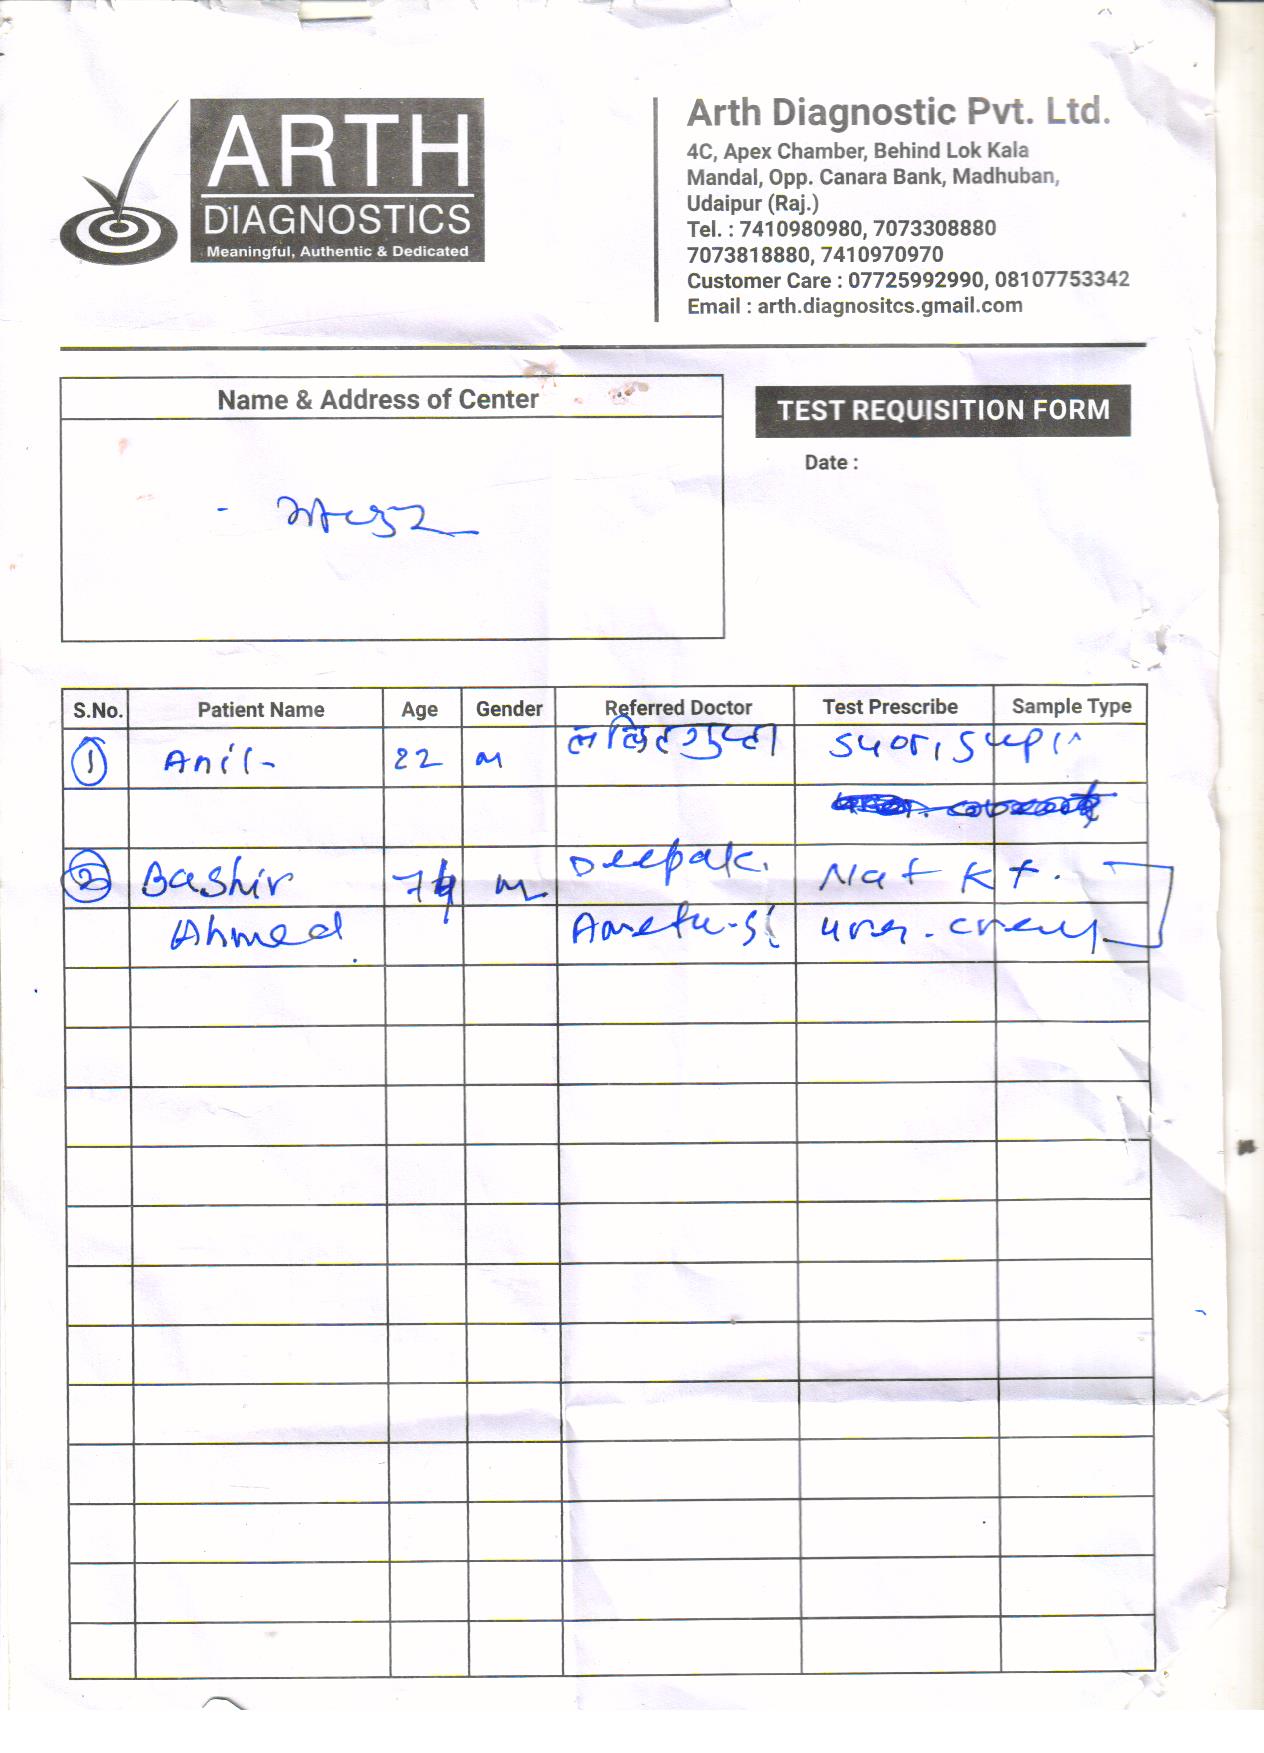 ARTH
DIAGNOSTICS
Meaningful, Authentic & Dedicated
Arth Diagnostic Pvt. Ltd.
4C, Apex Chamber, Behind Lok Kala
Mandal, Opp. Canara Bank, Madhuban,
Udaipur (Raj.)
Tel. : 7410980980, 7073308880
7073818880, 7410970970
Customer Care : 07725992990, 08107753342
Email : arth.diagnositcs.gmail.com
Name & Address of Center
TEST REQUISITION FORM
Date :
S.No. Patient Name Age Gender Referred Doctor Test Prescribe Sample Type
1 Anil 22 m
2 Bashir 74 m Deepak. Na+ K+.
Ahmed